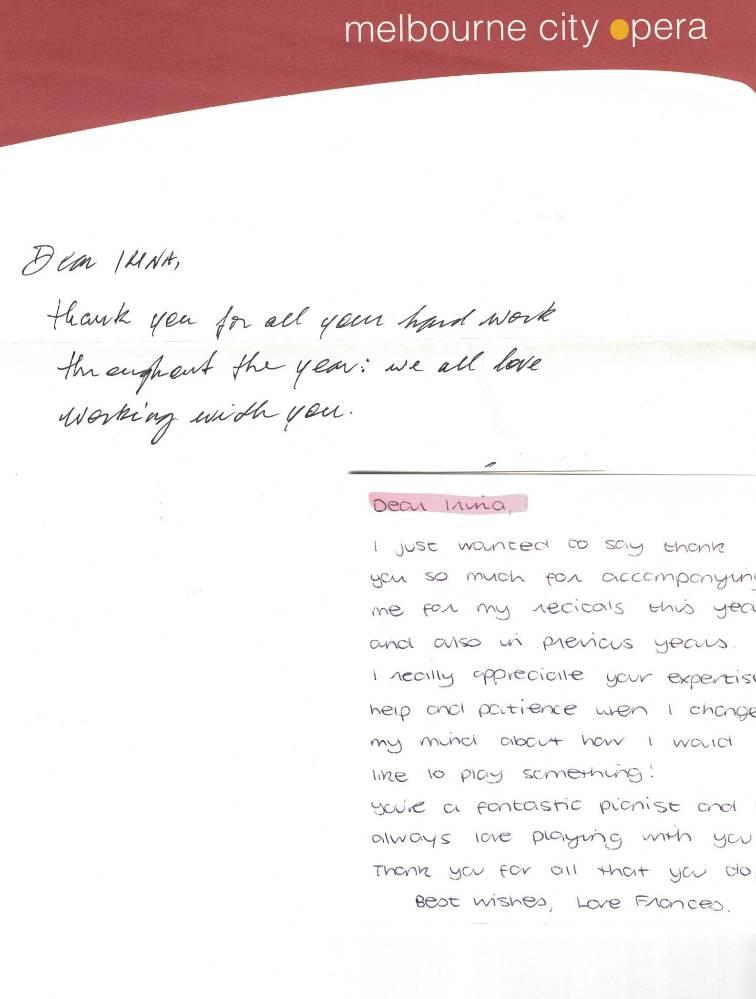 melbourne city opera
Dear IRINA,
thank you for all your hard work
throughout the year: we all love
working with you.
Dear Irina,
I just wanted to say thank
you so much for accompanying
me for my recitals this yea
and also in previous years.
I really appreciate your expertis
help and patience wen I change
my mind about how I would
like to play something!
You're a fantastic pianist and
always love playing with you
Thank you for all that you do
Best wishes, Love Frances.